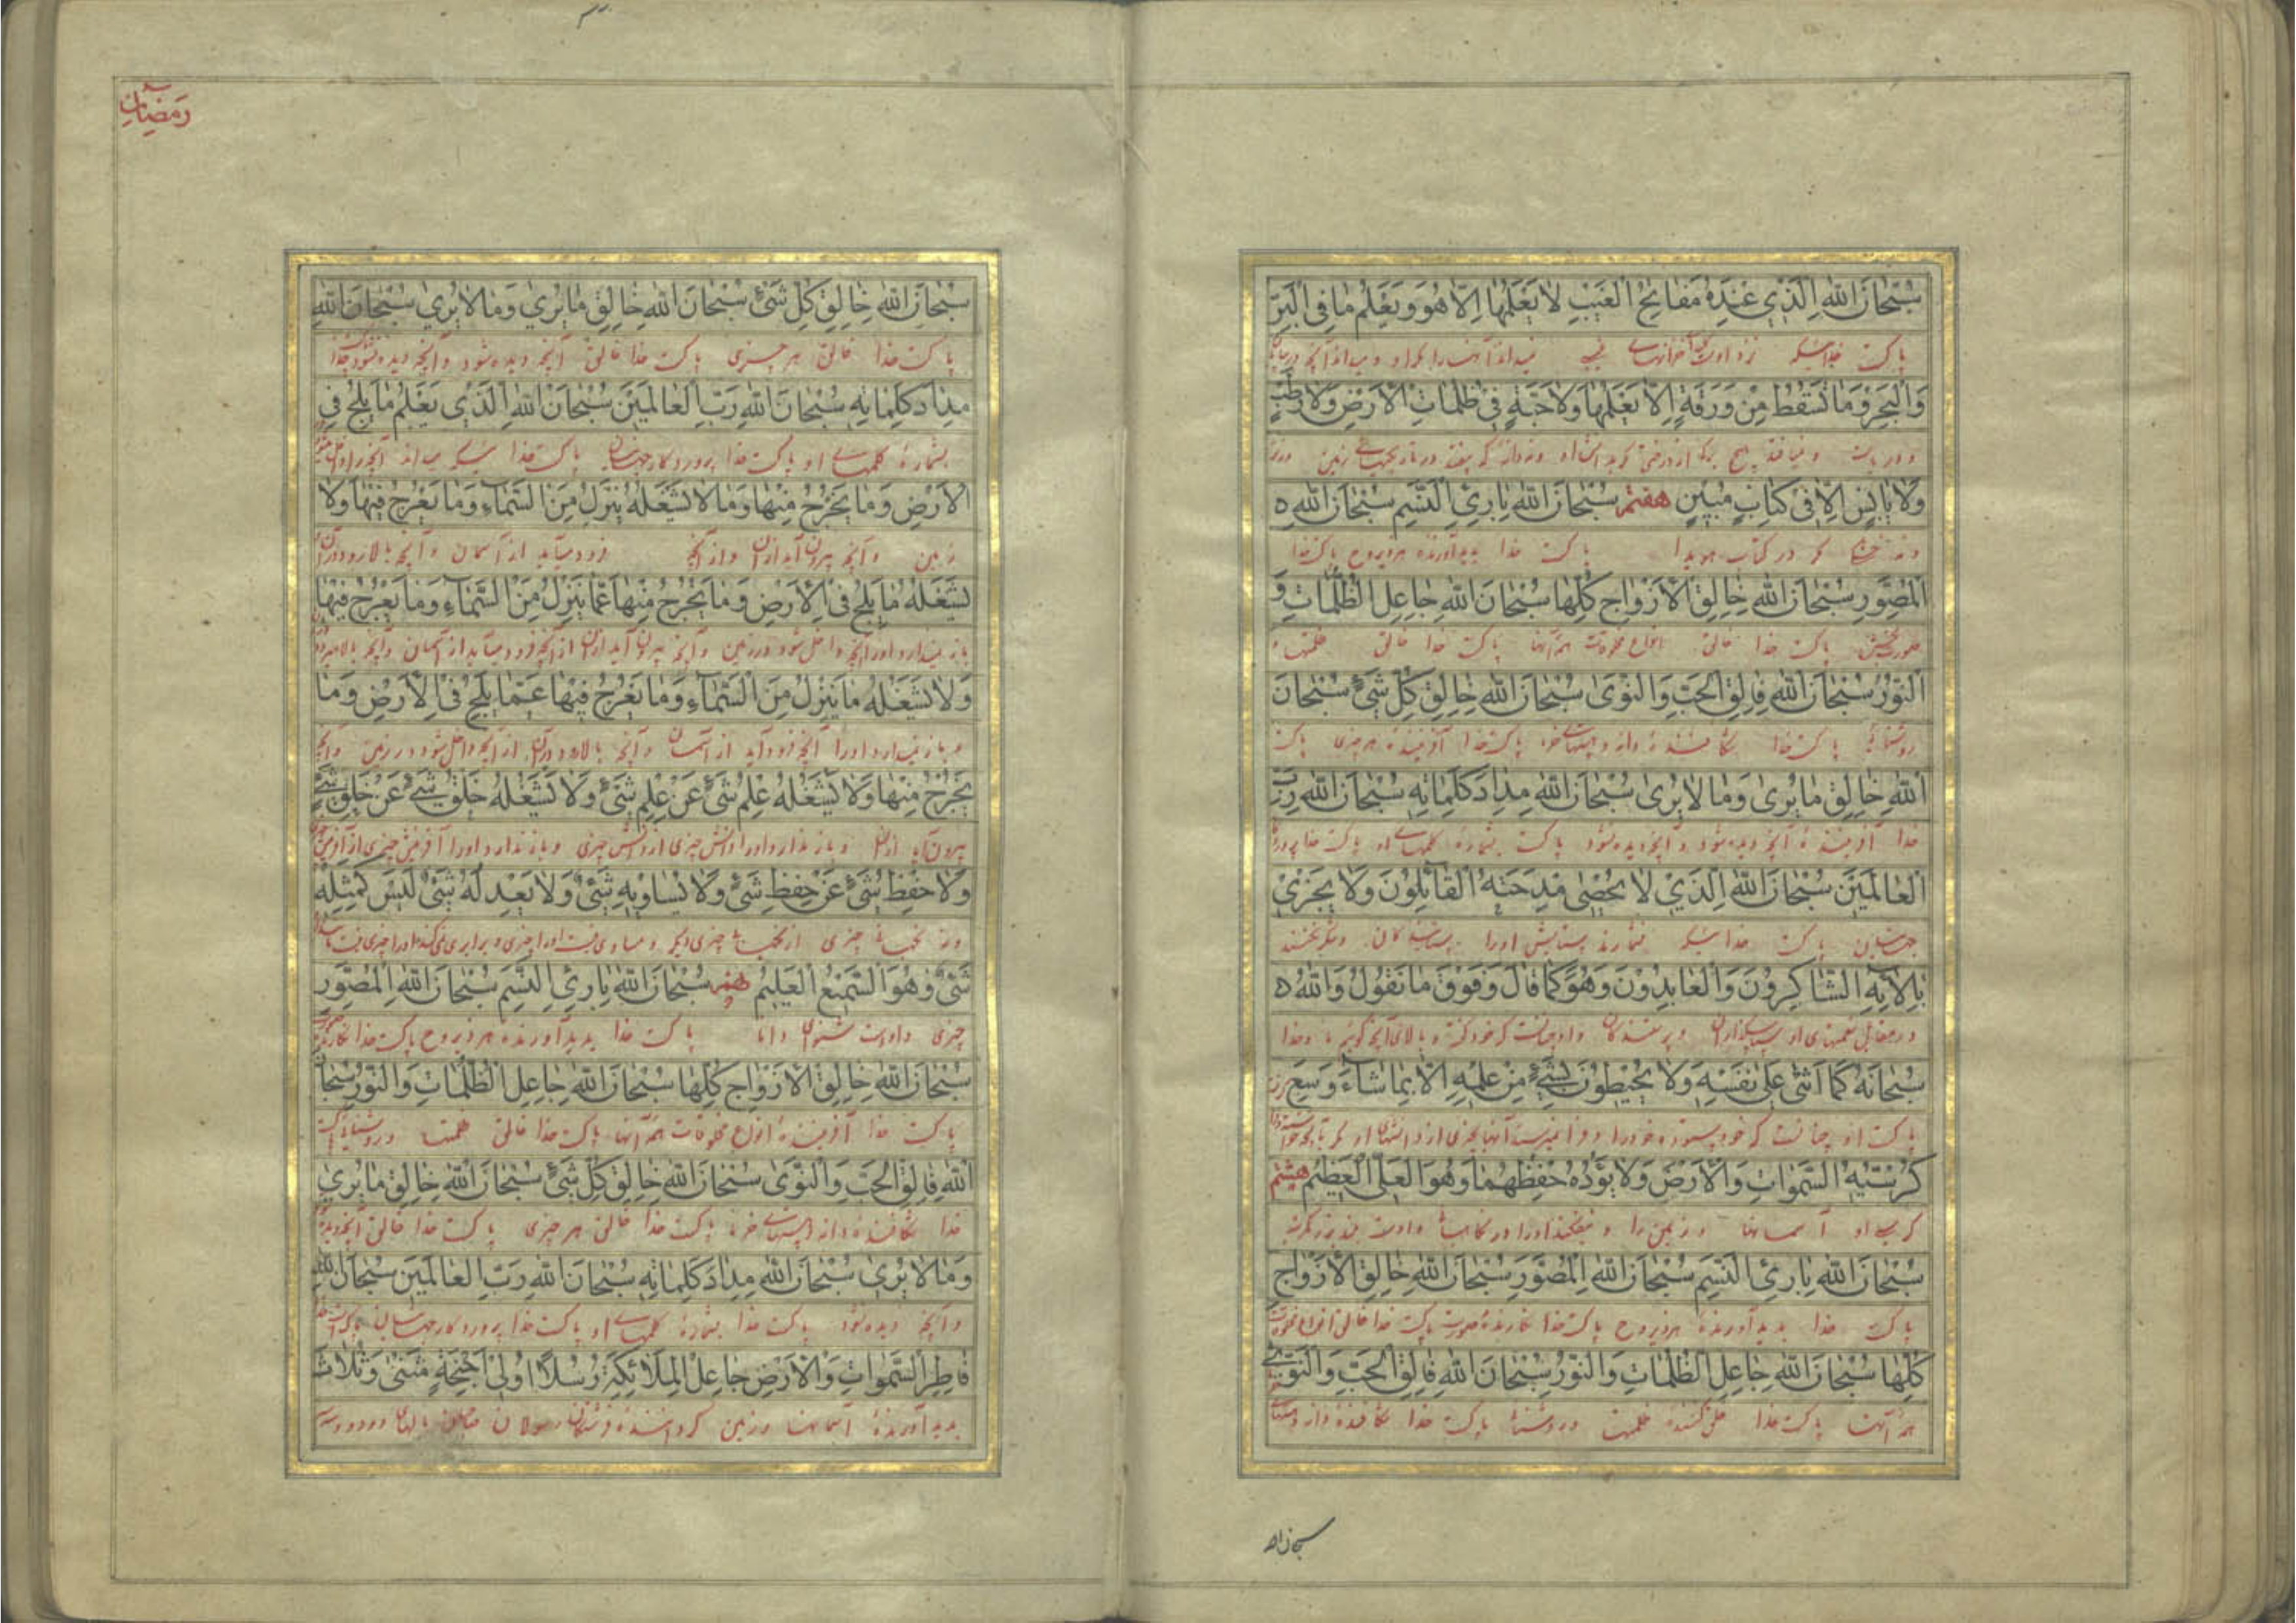 سُبْحَانَ اللّٰهِ الَّذِي عِنْدَهُ مَفَاتِحُ الْغَيْبِ لَا يَعْلَمُهَا اِلَّا هُوَ وَيَعْلَمُ مَا فِي الْبَرِّ
پاکست خدائیکه نزد اوست خزانهای غیب نمیداند آنها را مکر او و میداند آنچه در بیابان
وَالْبَحْرِ وَمَا تَسْقُطُ مِنْ وَرَقَةٍ اِلَّا يَعْلَمُهَا وَلَا حَبَّةٍ فِي ظُلُمَاتِ الْاَرْضِ وَلَا رَطْبٍ
وَلَا يَابِسٍ اِلَّا فِي كِتَابٍ مُبِينٍ هفتم سُبْحَانَ اللّٰهِ بَارِئِ النَّسَمِ سُبْحَانَ اللّٰهِ
ونه خشکی مکر در کتاب هویدا پاکست خدا پدیدآورنده هر ذیروح پاکست خدا
الْمُصَوِّرِ سُبْحَانَ اللّٰهِ خَالِقِ الْاَزْوَاجِ كُلِّهَا سُبْحَانَ اللّٰهِ جَاعِلِ الظُّلُمَاتِ وَ
صورت بخش پاکست خدا خالق انواع مخلوقات همه آنها پاکست خدا خالق ظلمتها و
النُّورِ سُبْحَانَ اللّٰهِ فَالِقِ الْحَبِّ وَالنَّوَىٰ سُبْحَانَ اللّٰهِ خَالِقِ كُلِّ شَيْءٍ سُبْحَانَ
روشنائی پاکست خدا شکافنده دانه و هستهای خرما پاکست خدا آفریننده هر چیزی پاکست
اللّٰهِ خَالِقِ مَا يُرَىٰ وَمَا لَا يُرَىٰ سُبْحَانَ اللّٰهِ مِدَادَ كَلِمَاتِهِ سُبْحَانَ اللّٰهِ رَبِّ
خدا آفریننده آنچه دیده شود و آنچه دیده نشود پاکست بشماره کلمهای او پاکست خدا پروردکار
الْعَالَمِينَ سُبْحَانَ اللّٰهِ الَّذِي لَا يُحْصِي مِدْحَتَهُ الْقَائِلُونَ وَلَا يَجْزِي
جهانیان پاکست خدائیکه نشمارند ستایش او را
بِآلَائِهِ الشَّاكِرُونَ وَالْعَابِدُونَ وَهُوَ كَمَا قَالَ وَفَوْقَ مَا نَقُولُ وَاللّٰهُ
در مقابل نعمتهای او سپاسکذاران و پرستندکان و او چنانست که خود کفته و بالای آنچه کوئیم ما و خدا
سُبْحَانَهُ كَمَا اَثْنَىٰ عَلَىٰ نَفْسِهِ وَلَا يُحِيطُونَ بِشَيْءٍ مِنْ عِلْمِهِ اِلَّا بِمَا شَاءَ وَسِعَ
كُرْسِيُّهُ السَّمٰوَاتِ وَالْاَرْضَ وَلَا يَؤُدُهُ حِفْظُهُمَا وَهُوَ الْعَلِيُّ الْعَظِيمُ هشتم
سُبْحَانَ اللّٰهِ بَارِئِ النَّسَمِ سُبْحَانَ اللّٰهِ الْمُصَوِّرِ سُبْحَانَ اللّٰهِ خَالِقِ الْاَزْوَاجِ
پاکست خدا پدیدآورنده هر ذیروح پاکست خدا نکارنده صورت پاکست خدا خالق انواع مخلوقات
كُلِّهَا سُبْحَانَ اللّٰهِ جَاعِلِ الظُّلُمَاتِ وَالنُّورِ سُبْحَانَ اللّٰهِ فَالِقِ الْحَبِّ وَالنَّوَىٰ
همه آنها پاکست خدا خلق کننده ظلمت و روشنائی پاکست خدا شکافنده دانه و هستهای
سبحان الله
رمضان
سُبْحَانَ اللّٰهِ خَالِقِ كُلِّ شَيْءٍ سُبْحَانَ اللّٰهِ خَالِقِ مَا يُرَىٰ وَمَا لَا يُرَىٰ سُبْحَانَ اللّٰهِ
پاکست خدا خالق هر چیزی پاکست خدا خالق آنچه دیده شود و آنچه دیده نشود پاکست خدا
مِدَادَ كَلِمَاتِهِ سُبْحَانَ اللّٰهِ رَبِّ الْعَالَمِينَ سُبْحَانَ اللّٰهِ الَّذِي يَعْلَمُ مَا يَلِجُ فِي
بشماره کلمهای او پاکست خدا پروردکار جهانیان پاکست خدائیکه میداند آنچه را داخل میشود
الْاَرْضِ وَمَا يَخْرُجُ مِنْهَا وَمَا لَا يَشْغَلُهُ يَنْزِلُ مِنَ السَّمَاءِ وَمَا يَعْرُجُ فِيهَا وَلَا
زمین و آنچه بیرون آید از آن و از آنچه فرود میآید از آسمان و آنچه بالا رود در آن
يَشْغَلُهُ مَا يَلِجُ فِي الْاَرْضِ وَمَا يَخْرُجُ مِنْهَا عَمَّا يَنْزِلُ مِنَ السَّمَاءِ وَمَا يَعْرُجُ فِيهَا
باز نمیدارد او را آنچه داخل شود در زمین و آنچه بیرون آید از آن از آنچه فرود میآید از آسمان و آنچه بالا میرود
وَلَا يَشْغَلُهُ مَا يَنْزِلُ مِنَ السَّمَاءِ وَمَا يَعْرُجُ فِيهَا عَمَّا يَلِجُ فِي الْاَرْضِ وَمَا
و باز نمیدارد او را آنچه فرود آید از آسمان و آنچه بالا رود در آن از آنچه داخل شود در زمین و آنچه
يَخْرُجُ مِنْهَا وَلَا يَشْغَلُهُ عِلْمُ شَيْءٍ عَنْ عِلْمِ شَيْءٍ وَلَا يَشْغَلُهُ خَلْقُ شَيْءٍ عَنْ خَلْقِ شَيْءٍ
بیرون آید از آن و باز ندارد او را دانش چیزی از دانش چیزی و باز ندارد او را آفرینش چیزی از آفرینش
وَلَا حِفْظُ شَيْءٍ عَنْ حِفْظِ شَيْءٍ وَلَا يُسَاوِيهِ شَيْءٌ وَلَا يَعْدِلُهُ شَيْءٌ لَيْسَ كَمِثْلِهِ
شَيْءٌ وَهُوَ السَّمِيعُ الْعَلِيمُ نهم سُبْحَانَ اللّٰهِ بَارِئِ النَّسَمِ سُبْحَانَ اللّٰهِ الْمُصَوِّرِ
چیزی و اوست شنوای دانا پاکست خدا پدیدآورنده هر ذیروح پاکست خدا نکارنده
سُبْحَانَ اللّٰهِ خَالِقِ الْاَزْوَاجِ كُلِّهَا سُبْحَانَ اللّٰهِ جَاعِلِ الظُّلُمَاتِ وَالنُّورِ سُبْحَانَ
پاکست خدا آفریننده انواع مخلوقات همه آنها پاکست خدا خالق ظلمت و روشنائی پاکست
اللّٰهِ فَالِقِ الْحَبِّ وَالنَّوَىٰ سُبْحَانَ اللّٰهِ خَالِقِ كُلِّ شَيْءٍ سُبْحَانَ اللّٰهِ خَالِقِ مَا يُرَىٰ
خدا شکافنده دانه و هستهای خرما پاکست خدا خالق هر چیزی پاکست خدا خالق آنچه دیده
وَمَا لَا يُرَىٰ سُبْحَانَ اللّٰهِ مِدَادَ كَلِمَاتِهِ سُبْحَانَ اللّٰهِ رَبِّ الْعَالَمِينَ سُبْحَانَ اللّٰهِ
و آنچه دیده نشود پاکست خدا بشماره کلمهای او پاکست خدا پروردکار جهانیان پاکست خدا
فَاطِرِ السَّمٰوَاتِ وَالْاَرْضِ جَاعِلِ الْمَلَائِكَةِ رُسُلًا اُولِي اَجْنِحَةٍ مَثْنَىٰ وَثُلَاثَ
پدیدآورنده آسمانها و زمین کرداننده فرشتکان رسولان صاحبان بالهای دو دو و سه